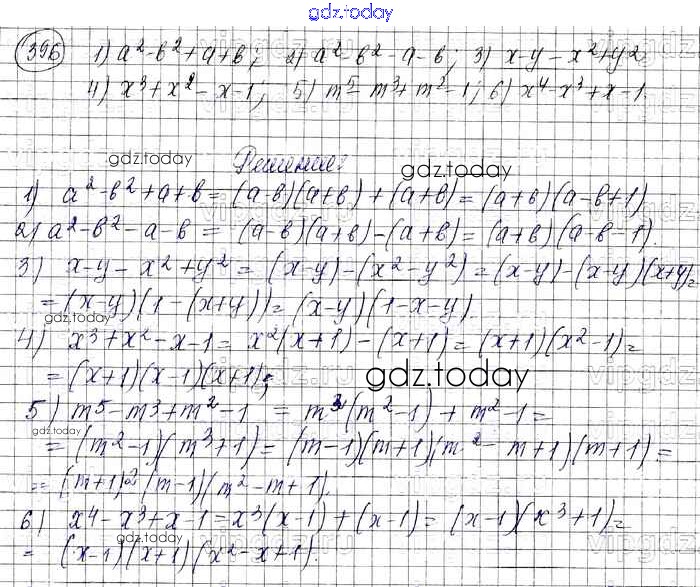 gdz.today
396 1) a²-b²+a+b; 2) a²-b²-a-b; 3) x-y-x²+y²
4) x³+x²-x-1; 5) m⁵-m³+m²-1; 6) x⁴-x³+x-1.
gdz.today Решение: gdz.today
1) a²-b²+a+b=(a-b)(a+b)+(a+b)=(a+b)(a-b+1)
2) a²-b²-a-b=(a-b)(a+b)-(a+b)=(a+b)(a-b-1).
3) x-y-x²+y²=(x-y)-(x²-y²)=(x-y)-(x-y)(x+y)=
=(x-y)(1-(x+y))=(x-y)(1-x-y)
gdz.today
4) x³+x²-x-1=x²(x+1)-(x+1)=(x+1)(x²-1)=
=(x+1)(x-1)(x+1); gdz.today
vipgdz
5) m⁵-m³+m²-1=m³(m²-1)+m²-1=
gdz.today
=(m²-1)(m³+1)=(m-1)(m+1)(m²-m+1)(m+1)=
=(m+1)²(m-1)(m²-m+1).
6) x⁴-x³+x-1=x³(x-1)+(x-1)=(x-1)(x³+1)=
=(x-1)(x+1)(x²-x+1).